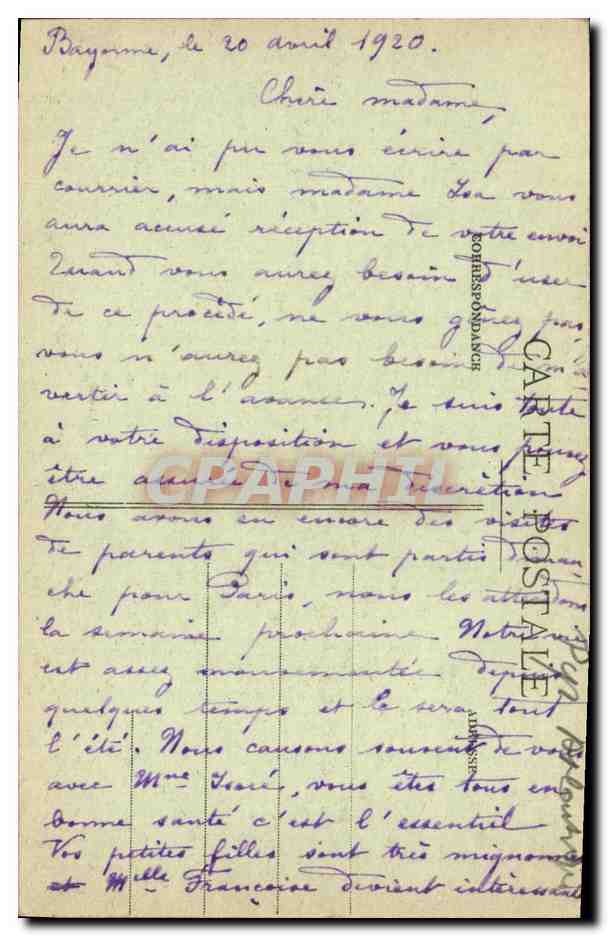 Bayonne, le 20 avril 1920.
Chère madame,
Je n'ai pu vous écrire par
courrier, mais madame Isa vous
aura accusé réception de votre envoi
Quand vous aurez besoin d'user
de ce procédé, ne vous gênez pas
vous n'aurez pas besoin de m'a
vertir à l'avance. Je suis toute
à votre disposition et vous pouvez
être assurée de ma discrétion
Nous avons eu encore des visites
de parents qui sont partis diman
che pour Paris, nous les attendons
la semaine prochaine Notre vie
est assez mouvementée depuis
quelques temps et le sera tout
l'été. Nous causons souvent de vous
avec Mme Isoré, vous êtes tous en
bonne santé c'est l'essentiel
Vos petites filles sont très mignonnes
et Melle Françoise devient intéressante
CORRESPONDANCE
CARTE POSTALE
ADRESSE
CPAPHIL